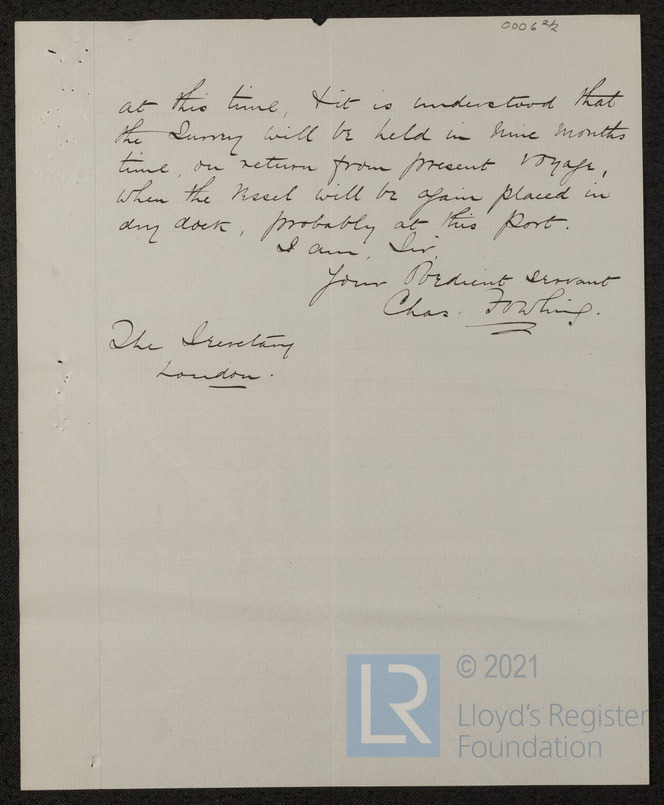 0006 2/2
at this time, & it is understood that
the Survey will be held in nine months
time, on return from present voyage,
when the vessel will be again placed in
dry dock, probably at this Port.
I am, Sir,
Your Obedient Servant
Chas. Fowling.
The Secretary
London.
LR
© 2021
Lloyd's Register
Foundation